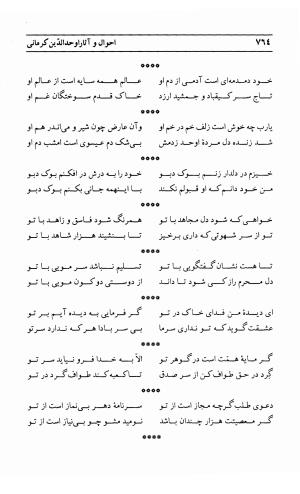 ۷۶٤ احوال و آثار اوحدالدّین کرمانی
****
خود دمدمه‌ای است آدمی از دم او عالم همه سایه است از عالم او
تاج سر کیقباد و جمشید ارزد خاک قدم سوختگان غم او
****
یارب چه خوش است زلف خم در خم او وآن عارض چون شیر و می‌اندر هم او
شد زنده دل مردهٔ اوحد زدمش بی‌شک دم عیسوی است امشب دم او
****
خیزم در دلدار زنم بوک دبو خود را به درش در افکنم بوک دبو
من خود دانم که او قبولم نکند با اینهمه جانی بکنم بوک دبو
****
خواهی که شود دل مجاهد با تو همرنگ شود فاسق و زاهد با تو
تو از سر شهوتی که داری برخیز تا بنشیند هزار شاهد با تو
****
تا هست نشان گفتگویی با تو تسلیم نباشد سر مویی با تو
دل محرم راز کی شود تا داند از دوستی دو کون مویی با تو
****
ای دیدهٔ من فدای خاک در تو گر فرمایی به دیده آیم بر تو
عشقت گوید که تو نداری سر ما بی سر بادا هر که ندارد سر تو
****
گر مایهٔ همّت است در گوهر تو الاّ به خدا فرو نیاید سر تو
گرد در حق طواف کن از سر صدق تا کعبه کند طواف گرد در تو
****
دعوی طلب گرچه مجاز است از تو سرنامهٔ دهر بی‌نیاز است از تو
گر معصیتت هزار چندان باشد نومید مشو چو بی‌نیاز است از تو
****